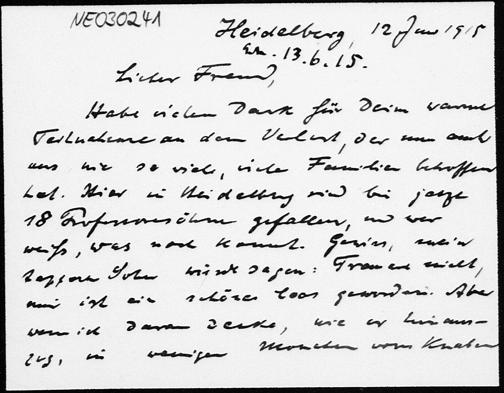 NE030241
Heidelberg, 12 Juni 1915
Erh. 13.6.15.
Lieber Freund,
Habe vielen Dank für Deine warme
Teilnahme an dem Verlust, der nun auch
uns wie so viele, viele Familien betroffen
hat. Hier in Heidelberg sind bis jetzt
18 Professorensöhne gefallen, und wer
weiß, was noch kommt. Gewiss, mein
tapferer Sohn würde sagen: Trauert nicht,
mir ist ein schönes Loos geworden. Aber
wenn ich daran denke, wie er hinaus-
zog, in wenigen Monaten vom Knaben